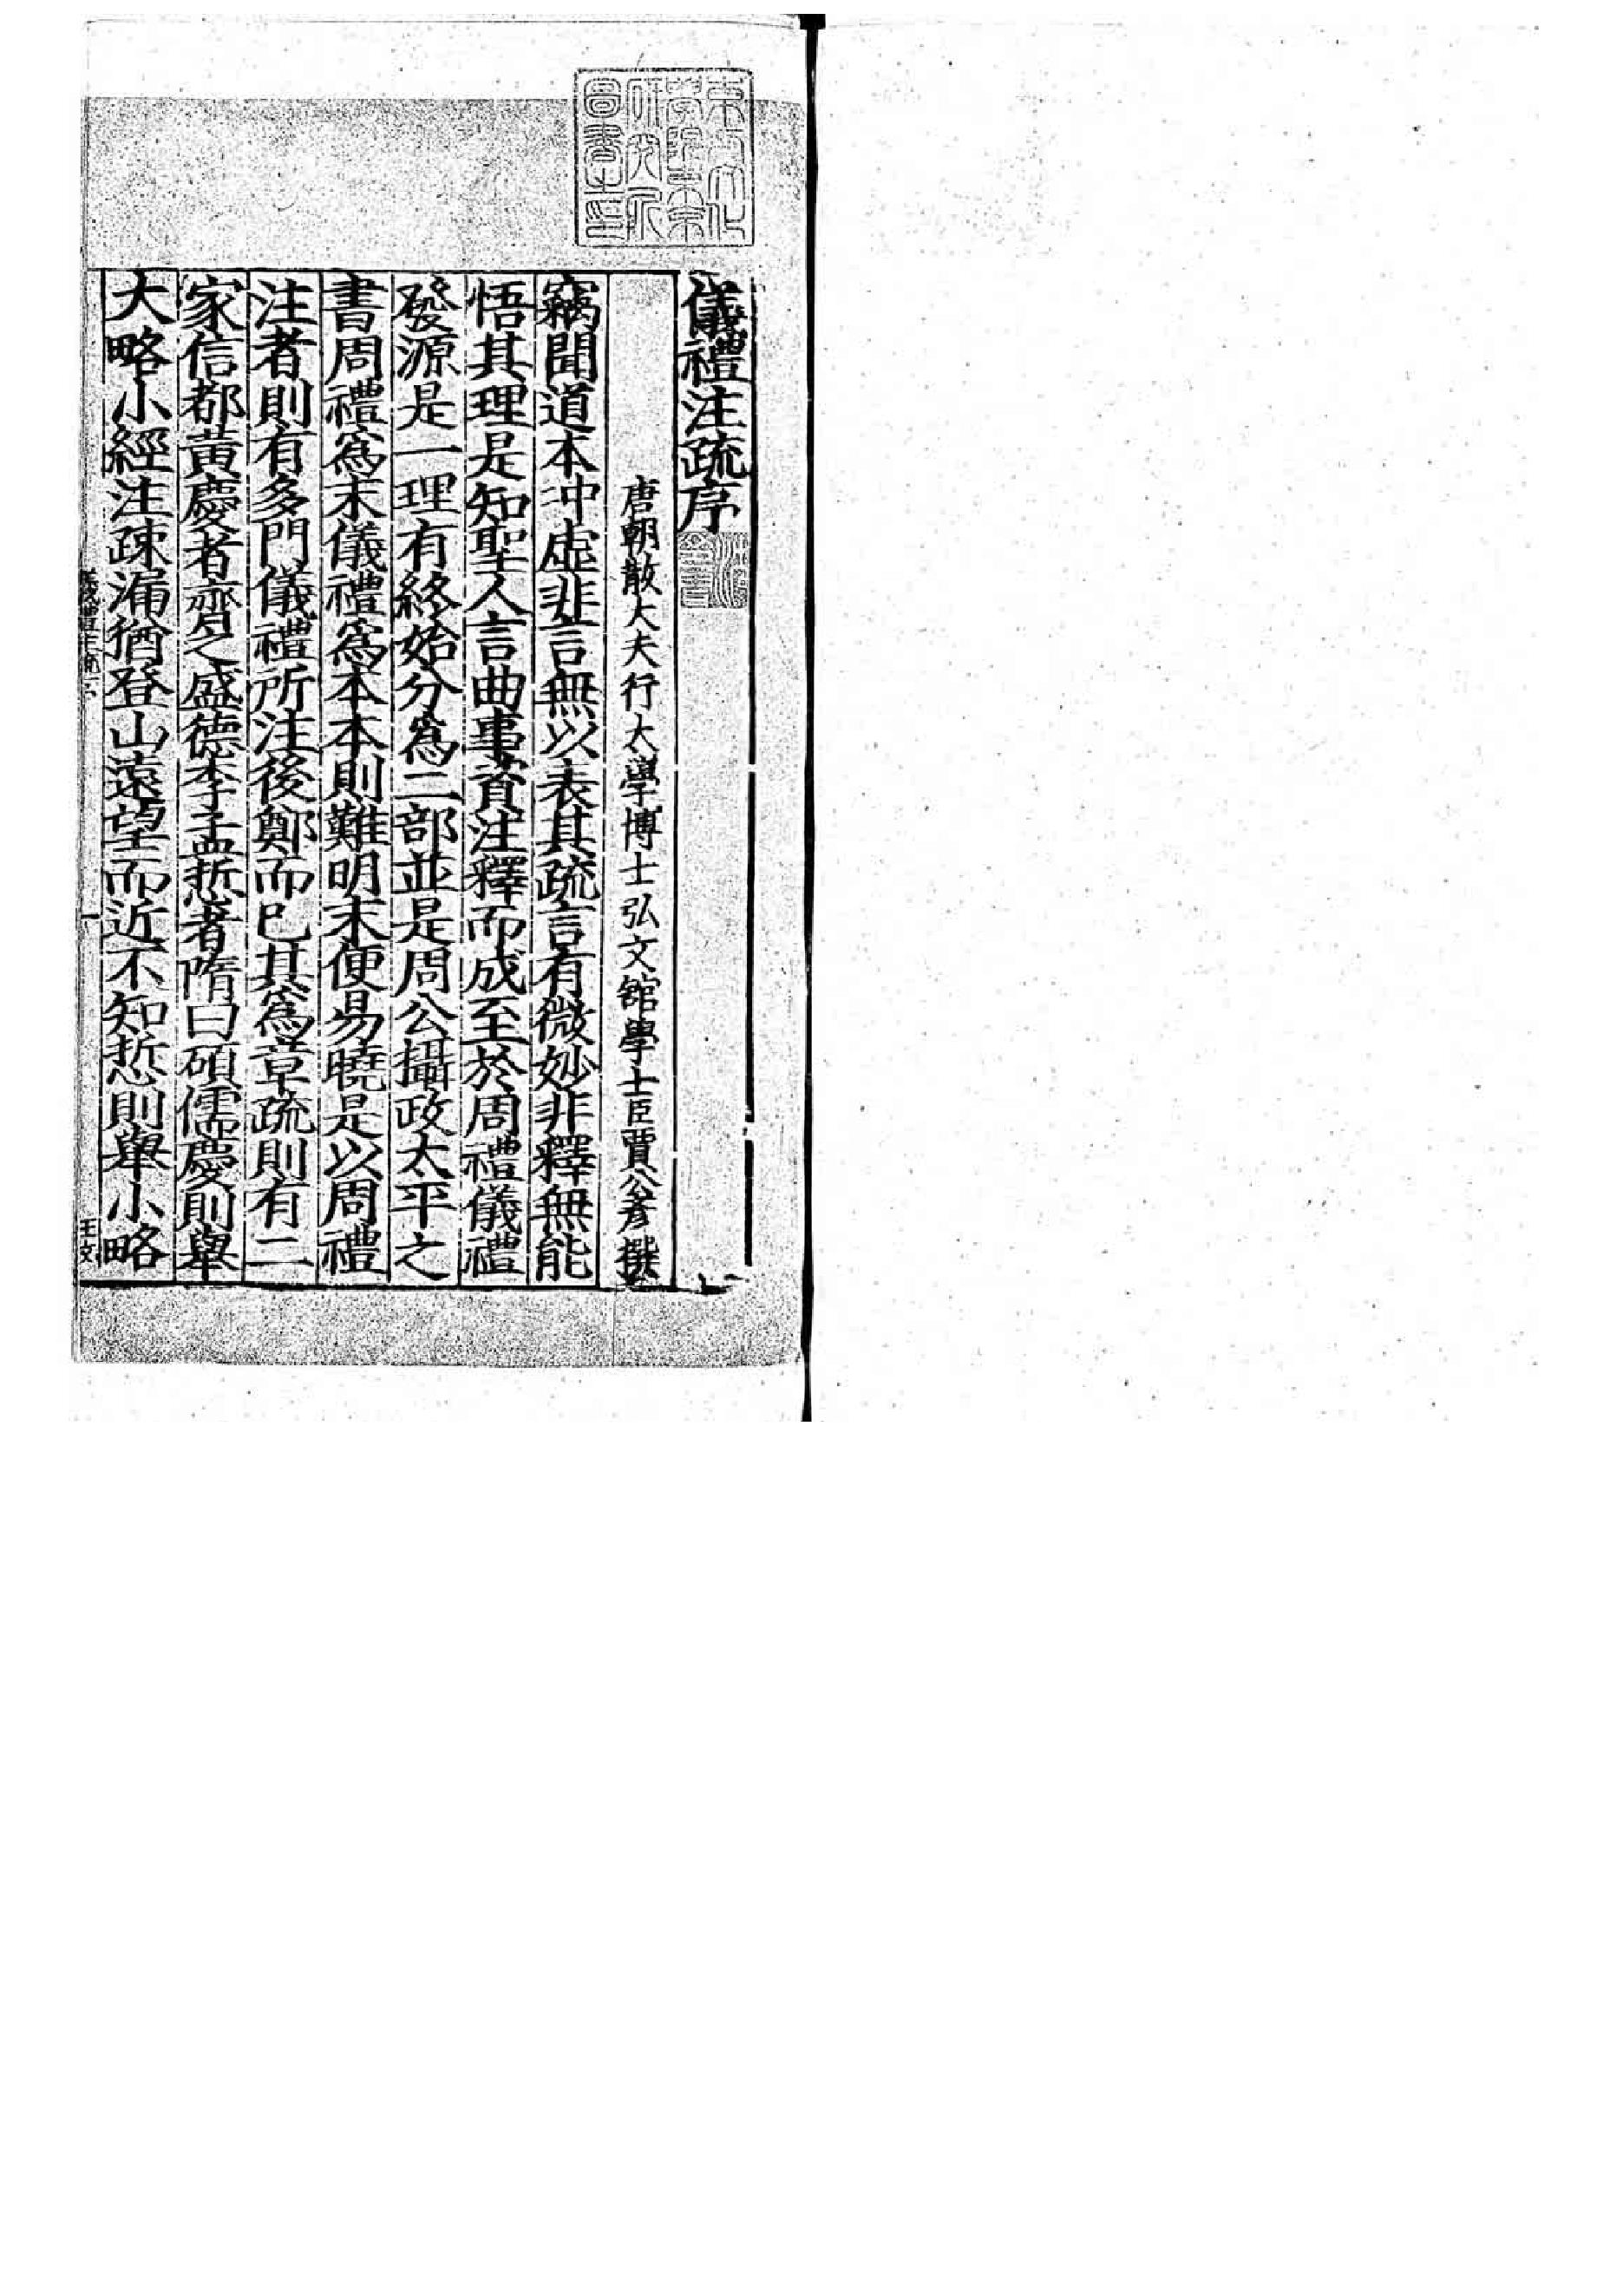 儀禮注疏序
唐朝散大夫行大學博士弘文館學士臣賈公彥撰
竊聞道本沖虛非言無以表其疏言有微妙非釋無能
悟其理是知聖人言曲事資注釋而成至於周禮儀禮
發源是一理有終始分爲二部並是周公攝政太平之
書周禮爲末儀禮爲本本則難明末便易曉是以周禮
注者則有多門儀禮所注後鄭而已其爲章疏則有二
家信都黃慶者齊之盛德李孟悊者隋曰碩儒慶則舉
大略小經注疎漏猶登山遠望而近不知悊則舉小略
儀禮注疏序
一
王文
東方文化學院京都研究所圖書之印